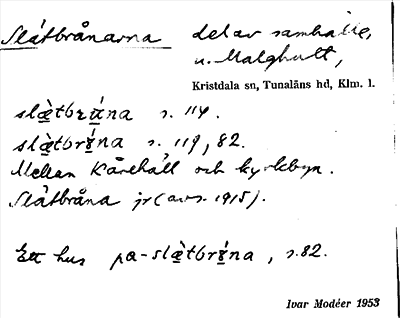 Slåtbrånarna del av samhälle,
u. Malghult,
Kristdala sn, Tunaläns hd, Klm. l.
slæ̀tbrá̱na s. 114.
slæ̀tbrá̱na s. 119, 82.
Mellan Kårehäll och kyrkbyn.
Slåtbråna jr (avs. 1915).
Ett hus pa-slæ̀tbrá̱na, s. 82.
Ivar Modéer 1953